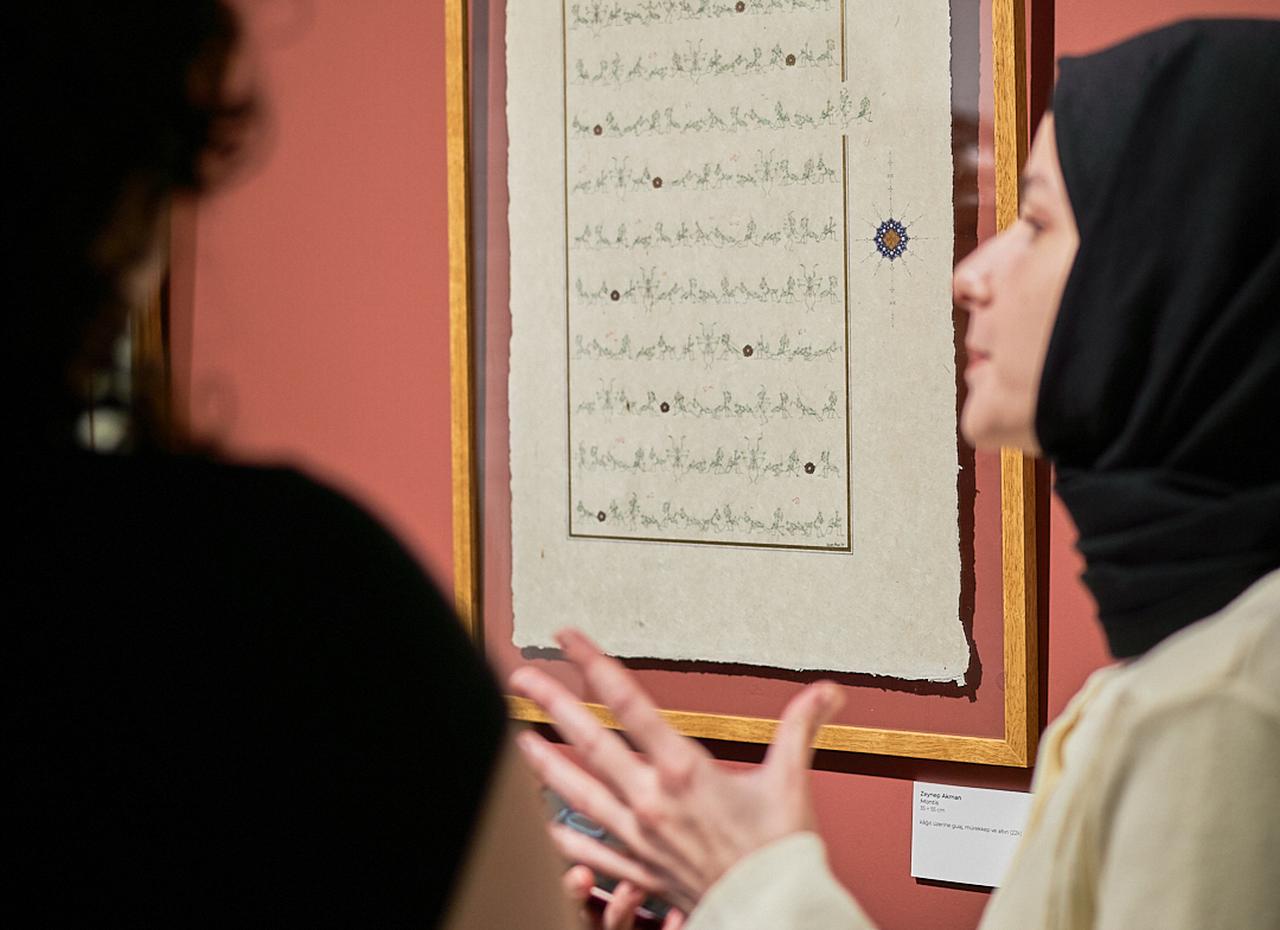 Zeynep Akman
Mantis
35 × 55 cm
kâğıt üzerine guaj, mürekkep ve altın (22k